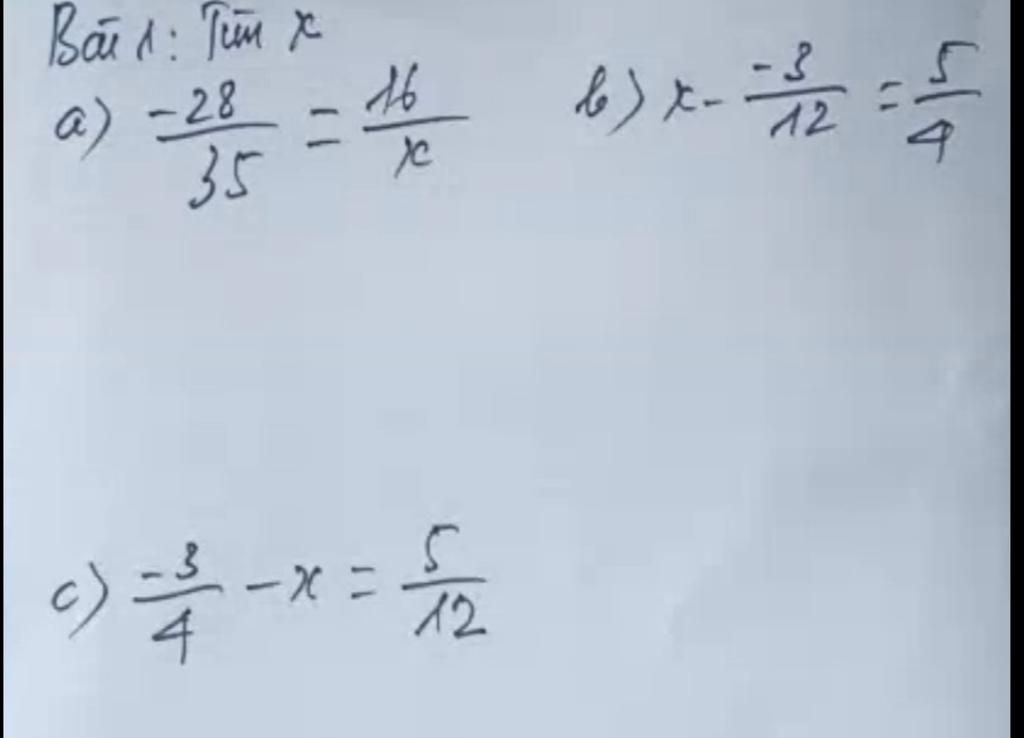 Bài 1: Tìm x
a) -28/35 = 16/x
b) x - -3/12 = 5/4
c) -3/4 - x = 5/12